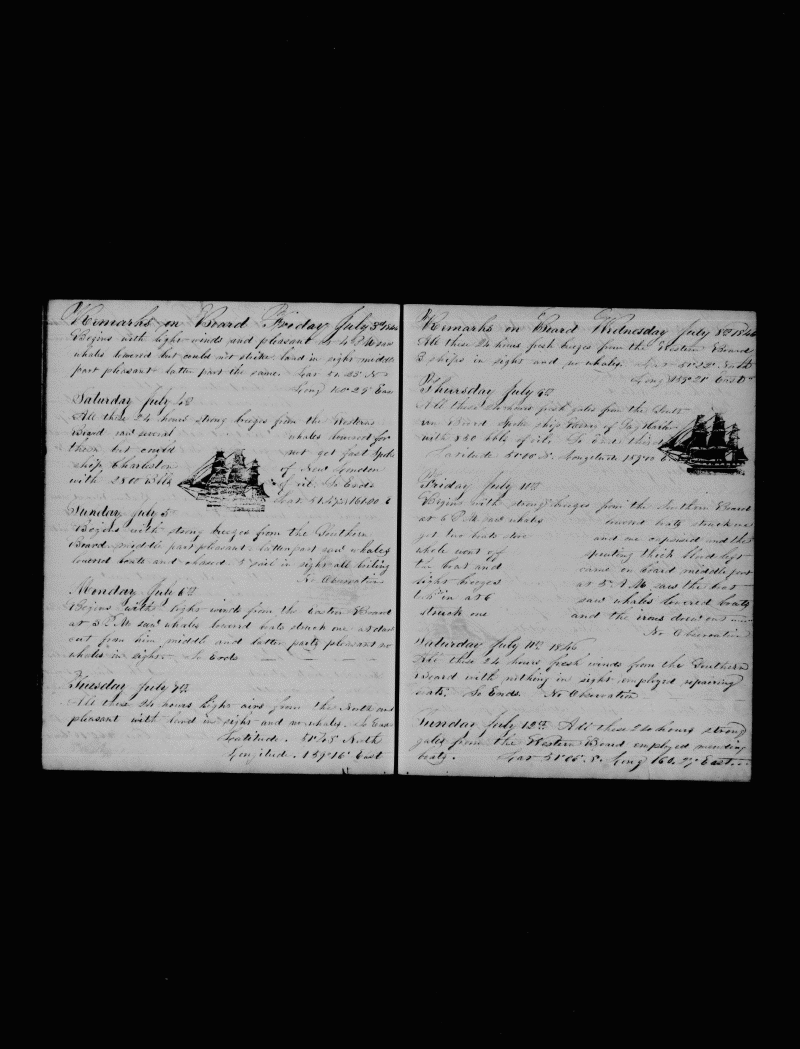 Remarks on Board Friday July 3d 1846
Begins with light winds and pleasant at 4 P.M saw
whales lowered but could not strike. land in sight middle
part pleasant latter part the same. Lat 51 25 N
Long 160 29 East
Saturday July 4th
All these 24 hours strong breezes from the Western
Board saw several whales lowered for
them but could not get fast Spoke
ship Charleston of New London
with 2800 bbls of oil. So Ends
Lat 51.47
Sunday July 5
Begins with strong breezes from the Southern
Board middle part pleasant latter part saw whales
lowered boats and chased sail in sight all boiling
No Observation
Monday July 6th
Begins with light winds from the Eastern Board
at 3 P.M saw whales lowered boats struck one at dark
cut from him middle and latter parts pleasant no
whales in sight. So Ends
Tuesday July 7th
All these 24 hours light airs from the North and
pleasant with land in sight and no whales. So Ends
Latitude. North
Longitude. 159°16' East
Remarks on Board Wednesday July 8th 1846
All these 24 hours fresh breezes from the Western Board
3 ships in sight and no whales. Lat 51°22' North
Long 159°21' East
Thursday July 9th
All these 24 hours fresh gales from the South
ern Board Spoke ship of Sag Harbor
with 850 bbls of oil. So Ends these
Latitude 51°00 Longitude 159
Friday July 10th
Begins with strong breezes from the Southern Board
at 6 P.M saw whales lowered boats struck one
got two boats stove and one capsized and the
whale went off spouting thick blood left
the boat and came on board middle part
light breezes at 3 A.M saw the boat
in at 6 saw whales lowered boats
struck one and the irons drew out
No Observation
Saturday July 11th 1846
All these 24 hours fresh winds from the Southern
Board with nothing in sight employed repairing
boats. So Ends. No Observation
Sunday July 12th All these 24 hours strong
gales from the Western Board employed mending
boats. Lat 51°06 Long 160. 27 East